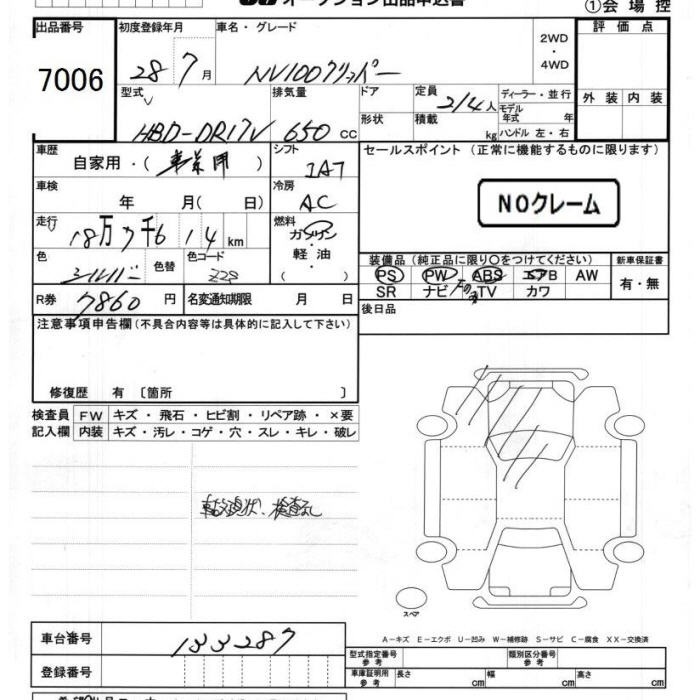 オークション出品申込書
①会 場 控
出品番号
7006
初度登録年月
28 7 月
車名・グレード
NV100クリッパー
2WD
・
4WD
評 価 点
外 装 内 装
型式
HBD-DR17V
排気量
650 cc
ドア
形状
定員
2/4 人
積載
kg
ディーラー・並 行
モデル
年式 年
ハンドル 左・右
車歴
自家用・( 事業用 )
シフト
IAT
セールスポイント (正常に機能するものに限ります)
NOクレーム
車検
年 月( 日)
冷房
AC
走行
18万7千614 km
燃料
ガソリン
・
軽 油
( ・ )
色
シルバー
色替
色コード
Z2S
装備品 (純正品に限り〇をつけてください)
PS PW ABS エアB AW
SR ナビ TV カワ
新車保証書
有・無
R券 7860 円
名変通知期限 月 日
後日品
注意事項申告欄(不具合内容等は具体的に記入して下さい)
修復歴 有 〔箇所 〕
検査員
記入欄
FW キズ ・ 飛石 ・ ヒビ割 ・ リペア跡 ・ ×要
内装 キズ・汚レ・コゲ・穴・スレ・キレ・破レ
検査なし
スペア
A－キズ E－エクボ U－凹み W－補修跡 S－サビ C－腐食 XX－交換済
車台番号 133287
登録番号
型式指定番号
参 考
類別区分番号
参 考
車庫証明用
参 考
長さ cm 幅 cm 高さ cm